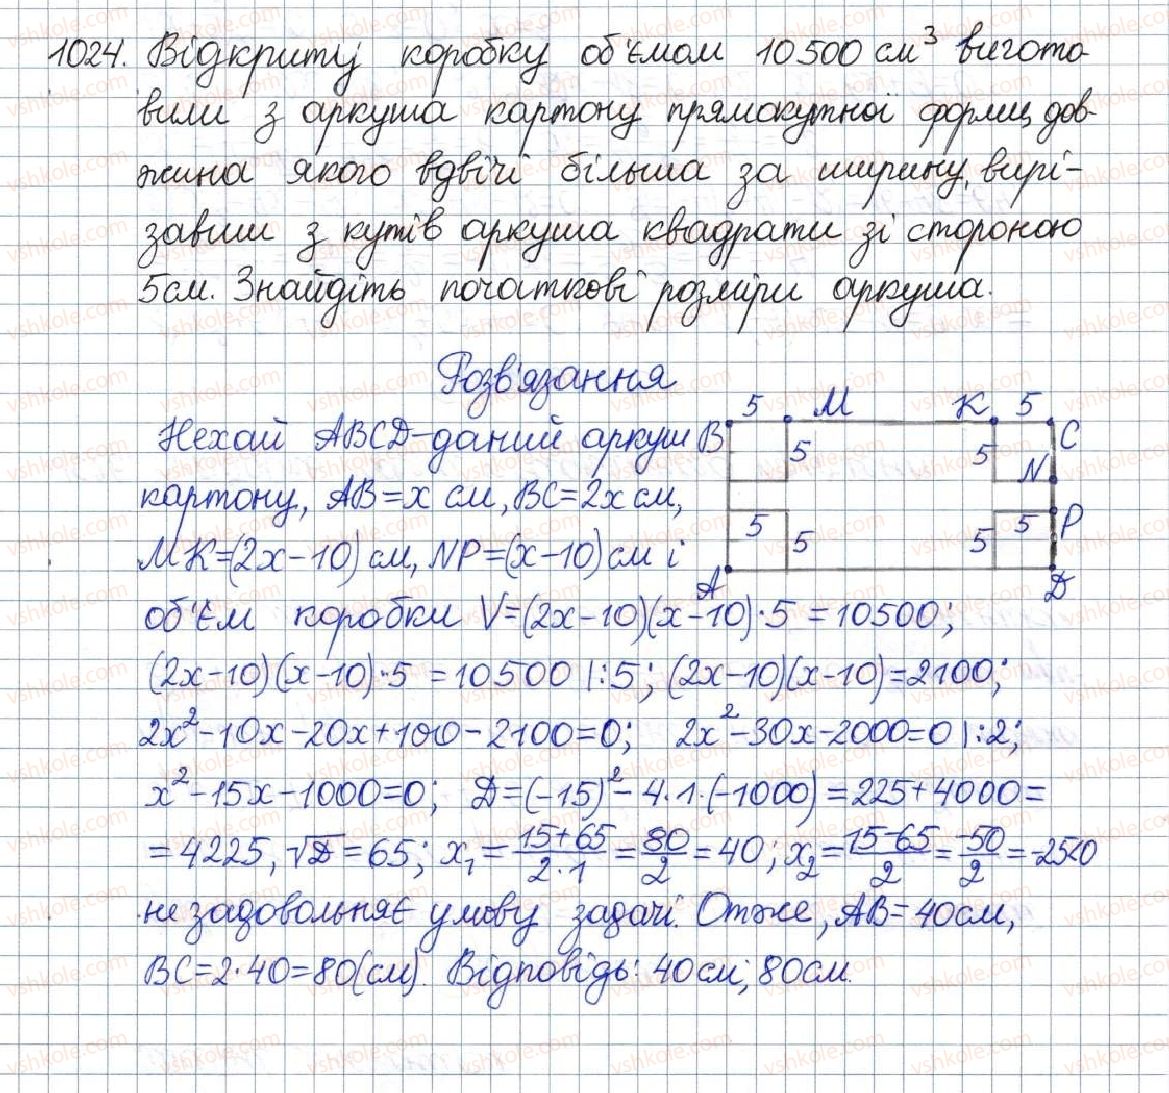 1024. Відкриту коробку об'ємом 10500 см³ вигото
вили з аркуша картону прямокутної форми, дов-
жина якого вдвічі більша за ширину, вирі-
завши з кутів аркуша квадрати зі стороною
5см. Знайдіть початкові розміри аркуша.
Розв'язання
Нехай ABCD-даний аркуш
картону, AB=x см, BC=2x см,
MK=(2x-10) см, NP=(x-10) см і
об'єм коробки V=(2x-10)(x-10)·5=10500;
(2x-10)(x-10)·5=10500 |:5; (2x-10)(x-10)=2100;
2x²-10x-20x+100-2100=0; 2x²-30x-2000=0 |:2;
x²-15x-1000=0; D=(-15)²-4·1·(-1000)=225+4000=
=4225, √D=65; x₁=(15+65)/(2·1)=80/2=40; x₂=(15-65)/2=-50/2=-25<0
не задовольняє умову задачі. Отже, AB=40см,
BC=2·40=80(см). Відповідь: 40см; 80см.
5 M K 5
B 5 5 C
N
5 5 5 5 P
A D
vshkole.com